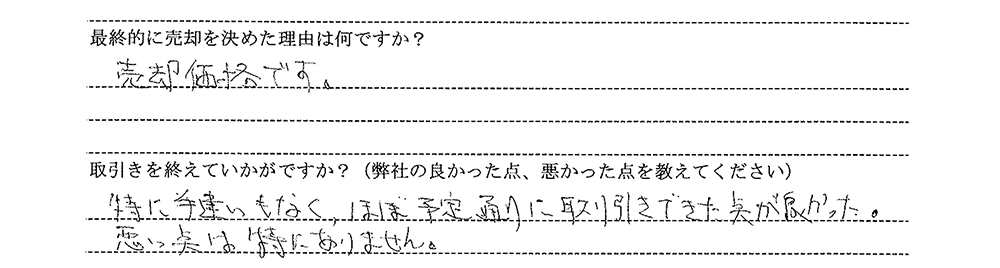 最終的に売却を決めた理由は何ですか？
売却価格です。
取引きを終えていかがですか？（弊社の良かった点、悪かった点を教えてください）
特に手違いもなく、ほぼ予定通りに取り引きできた点が良かった。
悪い点は特にありません。